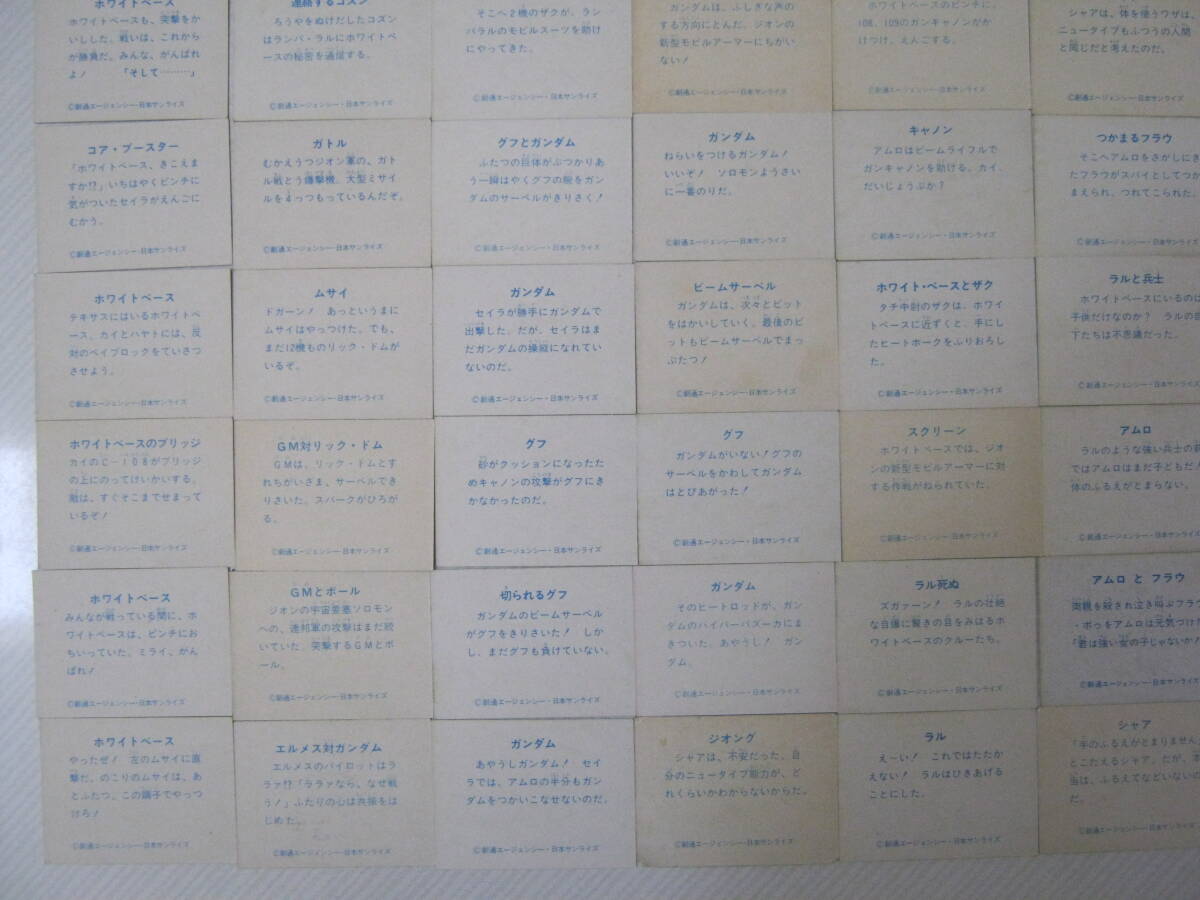 ホワイトベース
ホワイトベースも、突撃をか
いしした。戦いは、これから
が勝負だ。みんな、がんばれ
よ! 「そして………」
©創通エージェンシー・日本サンライズ
連絡するコズン
ろうやをぬけだしたコズン
はランバ・ラルにホワイトベ
ースの秘密を通信する。
©創通エージェンシー・日本サンライズ
そこへ2機のザクが、ラン
バラルのモビルスーツを助け
にやってきた。
©創通エージェンシー・日本サンライズ
ガンダムは、ふしぎな声の
する方向にとんだ。ジオンの
新型モビルアーマーにちがい
ない!
©創通エージェンシー・日本サンライズ
ホワイトベースのピンチに、
108、109のガンキャノンがか
けつけ、えんごする。
©創通エージェンシー・日本サンライズ
シャアは、体を使うワザは、
ニュータイプもふつうの人間
と同じだと考えたのだ。
©創通エージェンシー・日本サンライズ
コア・ブースター
「ホワイトベース、きこえま
すか!?」いちはやくピンチに
気がついたセイラがえんごに
むかう。
©創通エージェンシー・日本サンライズ
ガトル
むかえうつジオン軍の、ガト
ル戦とう爆撃機。大型ミサイ
ルを4っつもっているんだぞ。
©創通エージェンシー・日本サンライズ
グフとガンダム
ふたつの巨体がぶつかりあ
う一瞬はやくグフの腕をガン
ダムのサーベルがきりさく!
©創通エージェンシー・日本サンライズ
ガンダム
ねらいをつけるガンダム!
いいぞ! ソロモンようさい
に一番のりだ。
©創通エージェンシー・日本サンライズ
キャノン
アムロはビームライフルで
ガンキャノンを助ける。カイ、
だいじょうぶか?
©創通エージェンシー・日本サンライズ
つかまるフラウ
そこへアムロをさがしにき
たフラウがスパイとしてつか
まえられ、つれてこられた。
©創通エージェンシー・日本サンライズ
ホワイトベース
テキサスにはいるホワイトベ
ース。カイとハヤトには、反
対のベイブロックをていさつ
させよう。
©創通エージェンシー・日本サンライズ
ムサイ
ドガーン! あっというまに
ムサイはやっつけた。でも、
まだ12機ものリック・ドムが
いるぞ。
©創通エージェンシー・日本サンライズ
ガンダム
セイラが勝手にガンダムで
出撃した。だが、セイラはま
だガンダムの操縦になれてい
ないのだ。
©創通エージェンシー・日本サンライズ
ビームサーベル
ガンダムは、次々とビット
をはかいしていく。最後のビ
ットもビームサーベルでまっ
ぷたつ!
©創通エージェンシー・日本サンライズ
ホワイト・ベースとザク
タチ中尉のザクは、ホワイ
トベースに近ずくと、手にし
たヒートホークをふりおろし
た。
©創通エージェンシー・日本サンライズ
ラルと兵士
ホワイトベースにいるのは
子供だけなのか? ラルの部
下たちは不思議だった。
©創通エージェンシー・日本サンライズ
ホワイトベースのブリッジ
カイのC-108がブリッジ
の上にのってけいかいする。
敵は、すぐそこまでせまって
いるぞ!
©創通エージェンシー・日本サンライズ
GM対リック・ドム
GMは、リック・ドムとす
れちがいざま、サーベルでき
りさいた。スパークがひろが
る。
©創通エージェンシー・日本サンライズ
グフ
砂がクッションになったた
めキャノンの攻撃がグフにき
かなかったのだ。
©創通エージェンシー・日本サンライズ
グフ
ガンダムがいない!グフの
サーベルをかわしてガンダム
はとびあがった!
©創通エージェンシー・日本サンライズ
スクリーン
ホワイトベースでは、ジオ
ンの新型モビルアーマーに対
する作戦がねられていた。
©創通エージェンシー・日本サンライズ
アムロ
ラルのような強い兵士の前
ではアムロはまだ子どもだ
体のふるえがとまらない。
©創通エージェンシー・日本サンライズ
ホワイトベース
みんなが戦っている間に、ホ
ワイトベースは、ピンチにお
ちいっていた。ミライ、がん
ばれ!
©創通エージェンシー・日本サンライズ
GMとボール
ジオンの宇宙要塞ソロモン
への、連邦軍の攻撃はまだ続
いていた。突撃するGMとボ
ール。
©創通エージェンシー・日本サンライズ
切られるグフ
ガンダムのビームサーベル
がグフをきりさいた! しか
し、まだグフも負けていない。
©創通エージェンシー・日本サンライズ
ガンダム
そのヒートロッドが、ガン
ダムのハイパーバズーカにま
きついた。あやうし! ガン
ダム。
©創通エージェンシー・日本サンライズ
ラル死ぬ
ズガァーン! ラルの壮絶
な自爆に驚きの目をみはるホ
ワイトベースのクルーたち。
©創通エージェンシー・日本サンライズ
アムロ と フラウ
両親を殺され泣き叫ぶフラウ
・ボゥをアムロは元気づけた
「君は強い女の子じゃないか
©創通エージェンシー・日本サンライズ
ホワイトベース
やったぜ! 左のムサイに直
撃だ。のこりのムサイは、あ
とふたつ。この調子でやっつ
けろ!
©創通エージェンシー・日本サンライズ
エルメス対ガンダム
エルメスのパイロットはラ
ラァ!?「ララァなら、なぜ戦
う!」ふたりの心は共振をは
じめた。
©創通エージェンシー・日本サンライズ
ガンダム
あやうしガンダム! セイ
ラでは、アムロの半分もガン
ダムをつかいこなせないのだ。
©創通エージェンシー・日本サンライズ
ジオング
シャアは、不安だった。自
分のニュータイプ能力が、ど
れくらいかわからないからだ。
©創通エージェンシー・日本サンライズ
ラル
え〜い! これではたたか
えない! ラルはひきあげる
ことにした。
©創通エージェンシー・日本サンライズ
シャア
「手のふるえがとまりません」
とこたえるシャア。だが、本
当は、ふるえてなどいないの
だ。
©創通エージェンシー・日本サンライズ